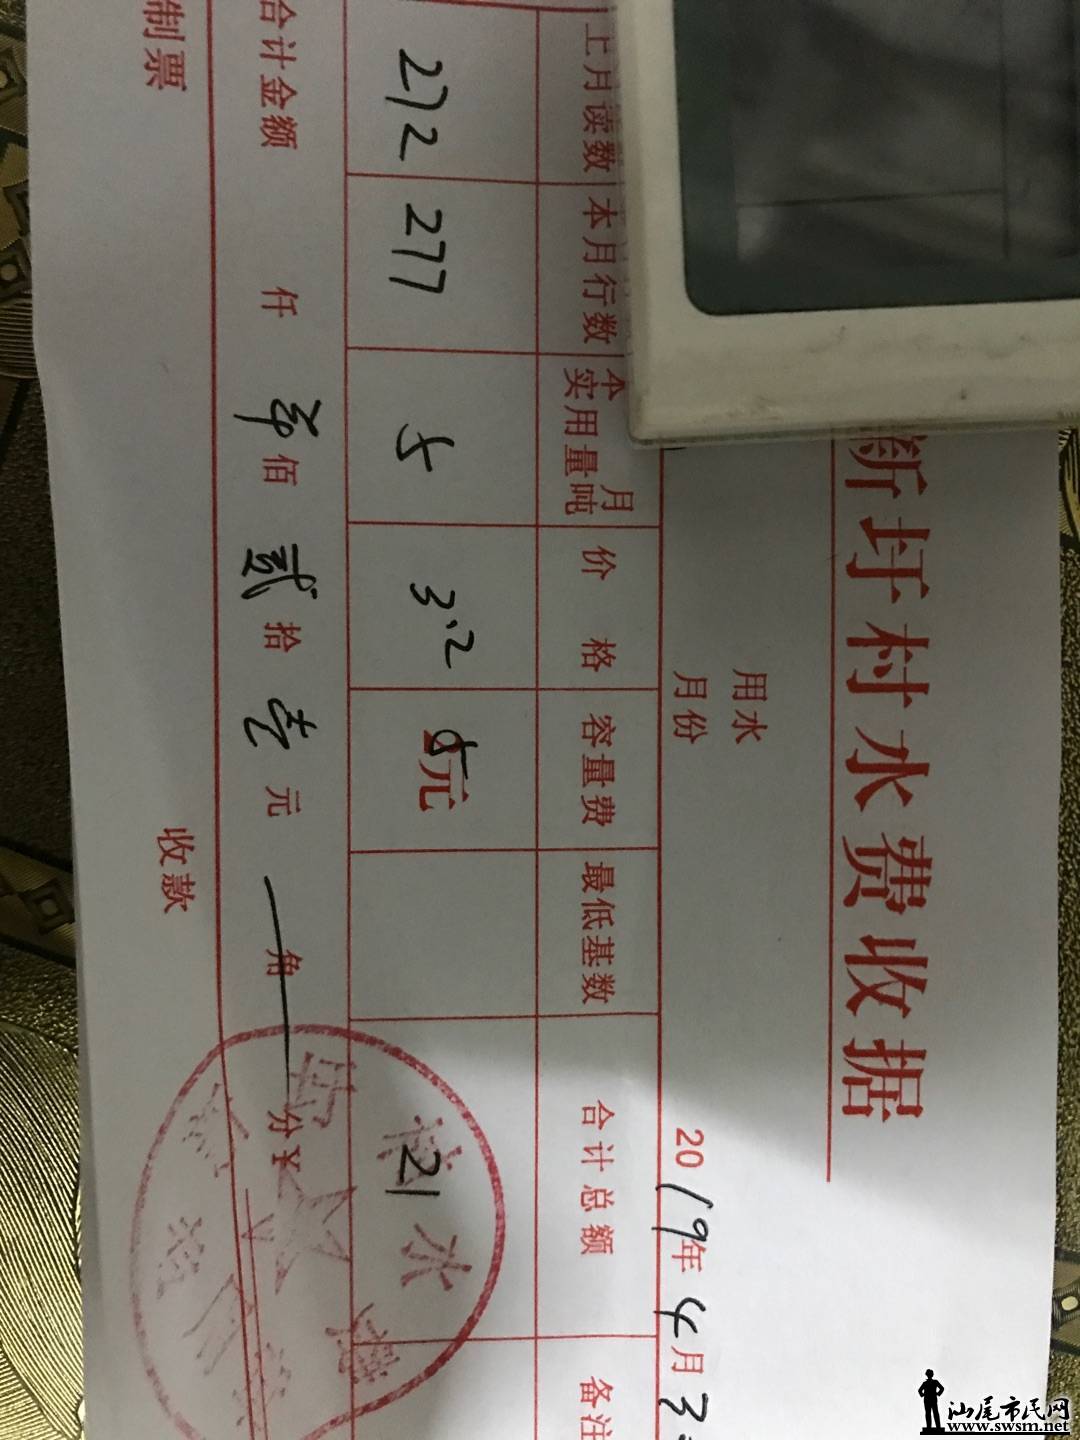 新圩村水费收据
用水
月份
2019年4月3
上月读数 本月行数 本月实用量吨 价格 容量费 最低基数 合计总额 备注
272 277 5 3.2 5元 21
合计金额 仟 零佰 贰拾 壹元 角 分¥
制票 收款
汕尾市民网
www.swsm.net